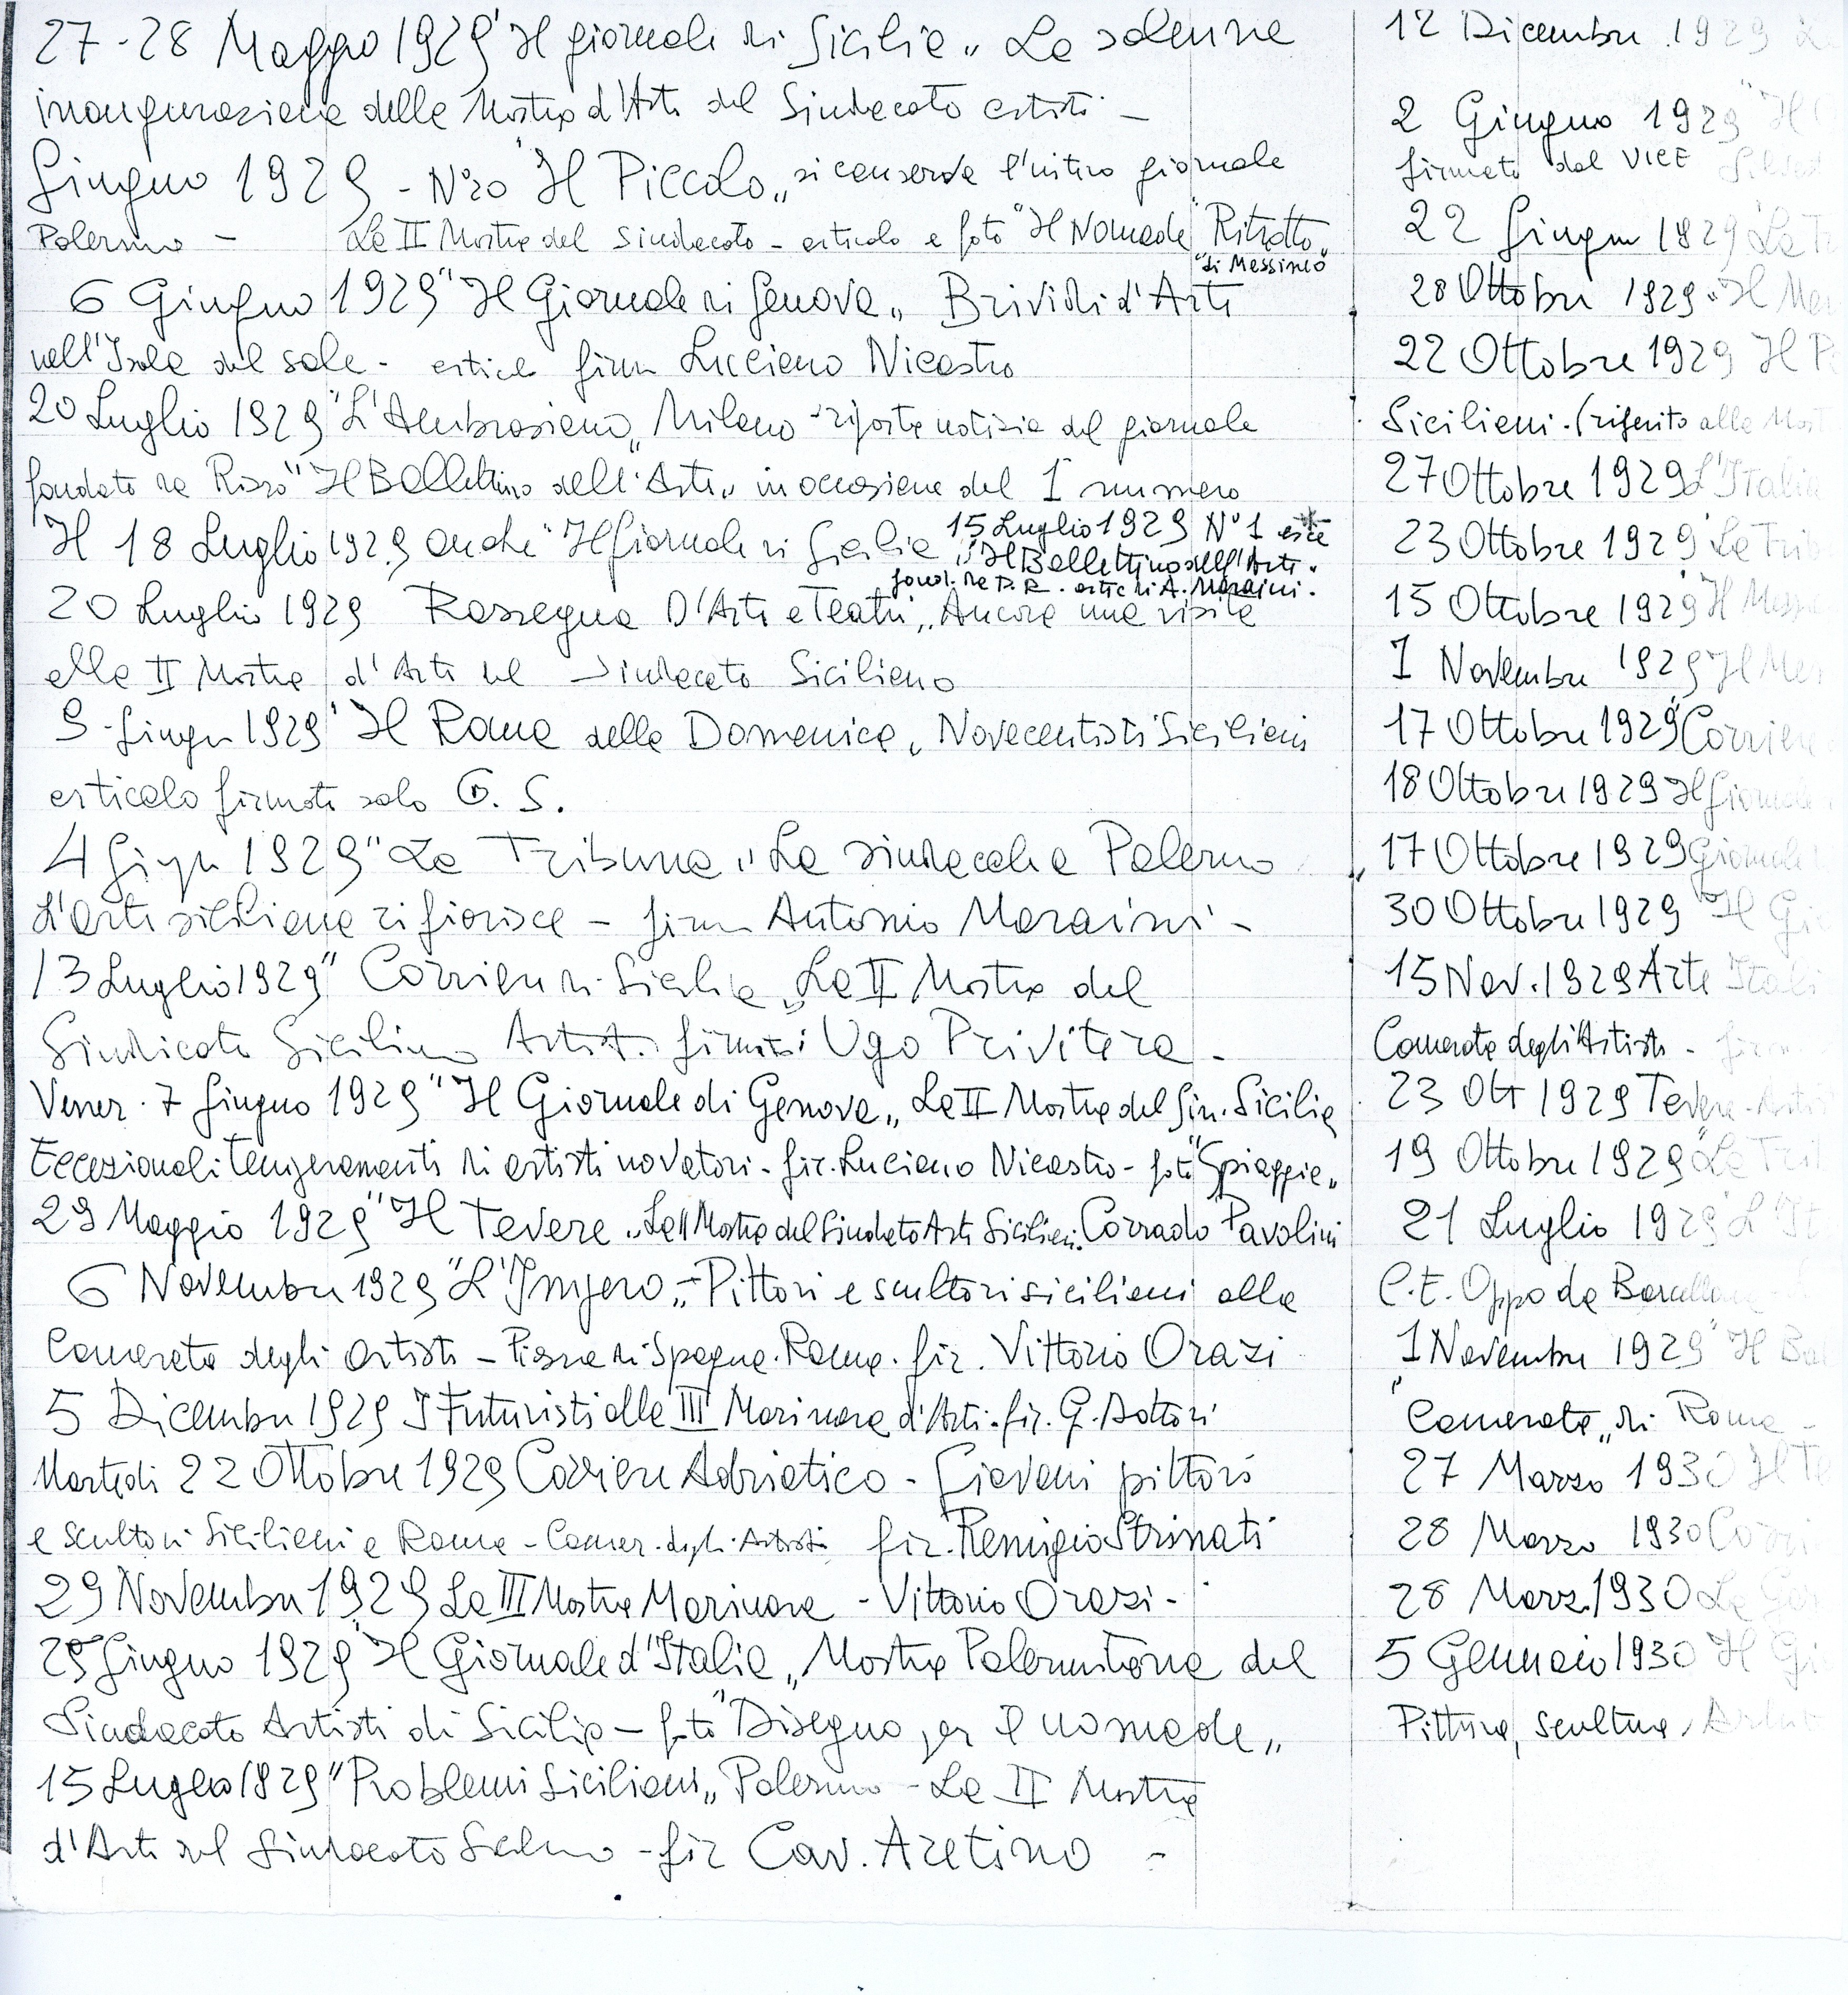 27-28 Maggio 1929 "Il giornale di Sicilia" La solenne
inaugurazione della Mostra d'Arte del Sindacato artisti -
Giugno 1929 - N°20 "Il Piccolo" si conserva l'intero giornale
Palermo - La II Mostra del Sindacato - articolo e foto "Il Nomade" "Ritratto"
"di Messineo"
6 Giugno 1929 "Il Giornale di Genova" Brividi d'Arte
nell'Isola del sole - artic. firm Luciano Nicastro
20 Luglio 1929 "L'Ambrosiano" Milano - riporta notizia del giornale
fondato da Rizzo "Il Bollettino dell'Arte" in occasione del 1° numero
Il 18 Luglio 1929 anche "Il Giornale di Sicilia"
15 Luglio 1929 N°1 esce
"Il Bollettino dell'Arte"
fond. da P.R. - artic di A. Maraini.
20 Luglio 1929 Rassegna D'Arte e Teatri "Ancora una visita
alla II Mostra d'Arte del Sindacato Siciliano
9 Giugn 1929 "Il Roma della Domenica" Novecentisti Siciliani
articolo firmato solo G. S.
4 Giugn 1929 "La Tribuna" La sindacale a Palermo
L'arte siciliana rifiorisce - firm Antonio Maraini -
13 Luglio 1929 "Corriere di Sicilia" La II Mostra del
Sindicato Siciliano Artisti firmato: Ugo Privitera -
Vener. 7 Giugno 1929 "Il Giornale di Genova" La II Mostra del Sin. Sicilia
Eccezionali Temperamenti di artisti novatori - fir. Luciano Nicastro - foto "Spiaggia"
29 Maggio 1929 "Il Tevere" La II Mostra del Sindacato Arti Siciliani. Corrado Pavolini
6 Novembre 1929 "L'Impero" - Pittori e scultori siciliani alla
Camerata degli artisti - Piazza di Spagna. Roma. fir. Vittorio Orazi
5 Dicembre 1929 I Futuristi alla III Marinara d'Arte - fir. G. Dottori
Martedi 22 Ottobre 1929 Corriere Adriatico - Giovani pittori
e scultori Siciliani a Roma - Camer. degli Artisti fir. Remigio Strinati
29 Novembre 1929 La III Mostra Marinara - Vittorio Orazi -
25 Giugno 1929 "Il Giornale d'Italia" Mostra Palermitana del
Sindacato Artisti di Sicilia - foto "Disegno per il nomade"
15 Luglio 1929 "Problemi Siciliani" Palermo - La II Mostra
d'Arte del Sindacato - fir Cav. Aretino -
12 Dicembre 1929
2 Giugno 1929 "Il
firmato dal VICE
22 Giugn 1929 "La
28 Ottobre 1929 "Il
22 Ottobre 1929 Il
Siciliani - (riferito alla
27 Ottobre 1929 L'Italia
23 Ottobre 1929 "La
15 Ottobre 1929 "Il
1 Novembre 1929 Il
17 Ottobre 1929 "Corriere
18 Ottobre 1929 Il Giornale
17 Ottobre 1929 Giornale
30 Ottobre 1929 "Il
15 Nov. 1929 Arte
Camerata degli Artisti -
23 Ott 1929 Tevere -
19 Ottobre 1929 "La
21 Luglio 1929
C. E. Oppo da
1 Novembre 1929 "Il
"Camerata" di Roma -
27 Marzo 1930 Il
28 Marzo 1930
28 Marz. 1930 La
5 Gennaio 1930 Il
Pittura, scultura,